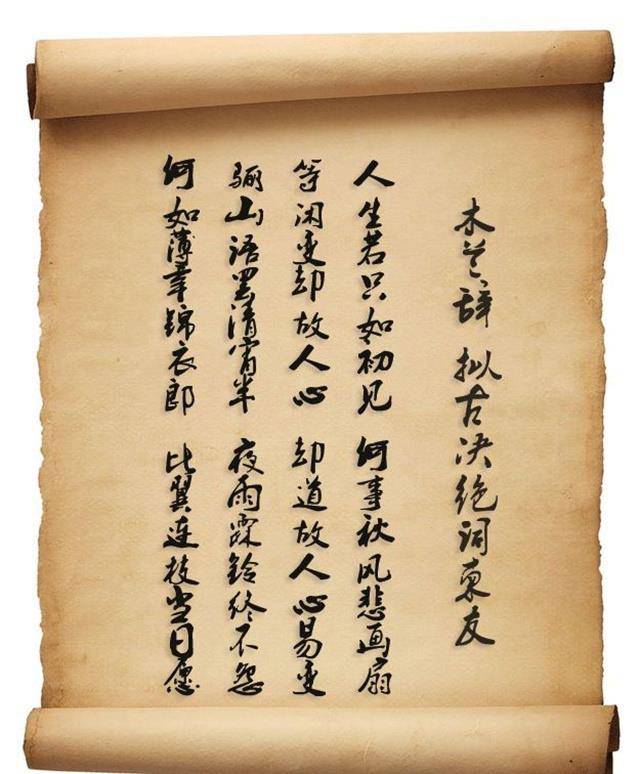 木兰辞 拟古决绝词柬友
人生若只如初见 何事秋风悲画扇
等闲变却故人心 却道故人心易变
骊山语罢清宵半 夜雨霖铃终不怨
何如薄幸锦衣郎 比翼连枝当日愿